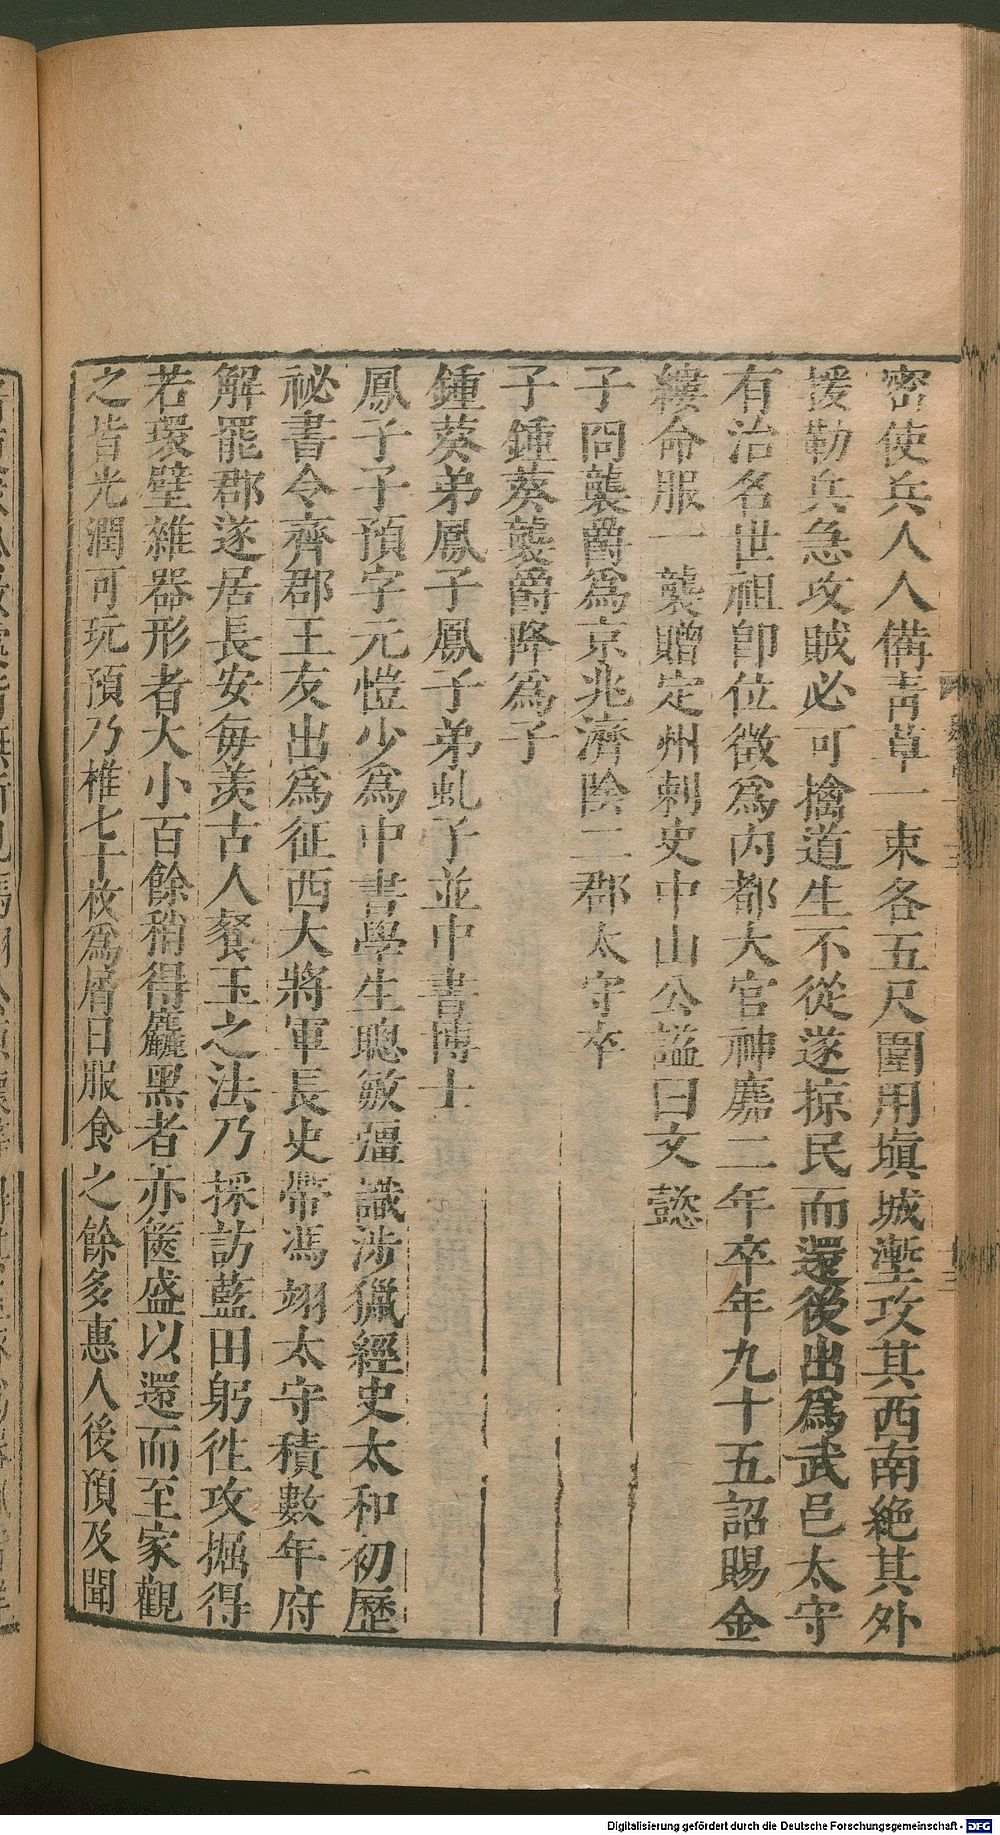 密使兵人人備青草一束各五尺圍用塡城塹攻其西南絶其外
援勒兵急攻賊必可擒道生不從遂掠民而還後出爲武邑太守
有治名世祖卽位徵爲内都大官神䴥二年卒年九十五詔賜金
縷命服一襲贈定州刺史中山公謚曰文懿
子問襲爵爲京兆濟陰二郡太守卒
子鍾葵襲爵降爲子
鍾葵弟鳳子鳳子弟虬子並中書博士
鳳子子預字元愷少爲中書學生聰敏彊識涉獵經史太和初歷
祕書令齊郡王友出爲征西大將軍長史帶馮翊太守積數年府
解罷郡遂居長安每羨古人餐玉之法乃採訪藍田躬徃攻掘得
若環璧雜器形者大小百餘稍得麤黑者亦篋盛以還而至家觀
之皆光潤可玩預乃椎七十枚爲屑日服食之餘多惠人後預及聞
Digitalisierung gefördert durch die Deutsche Forschungsgemeinschaft - DFG